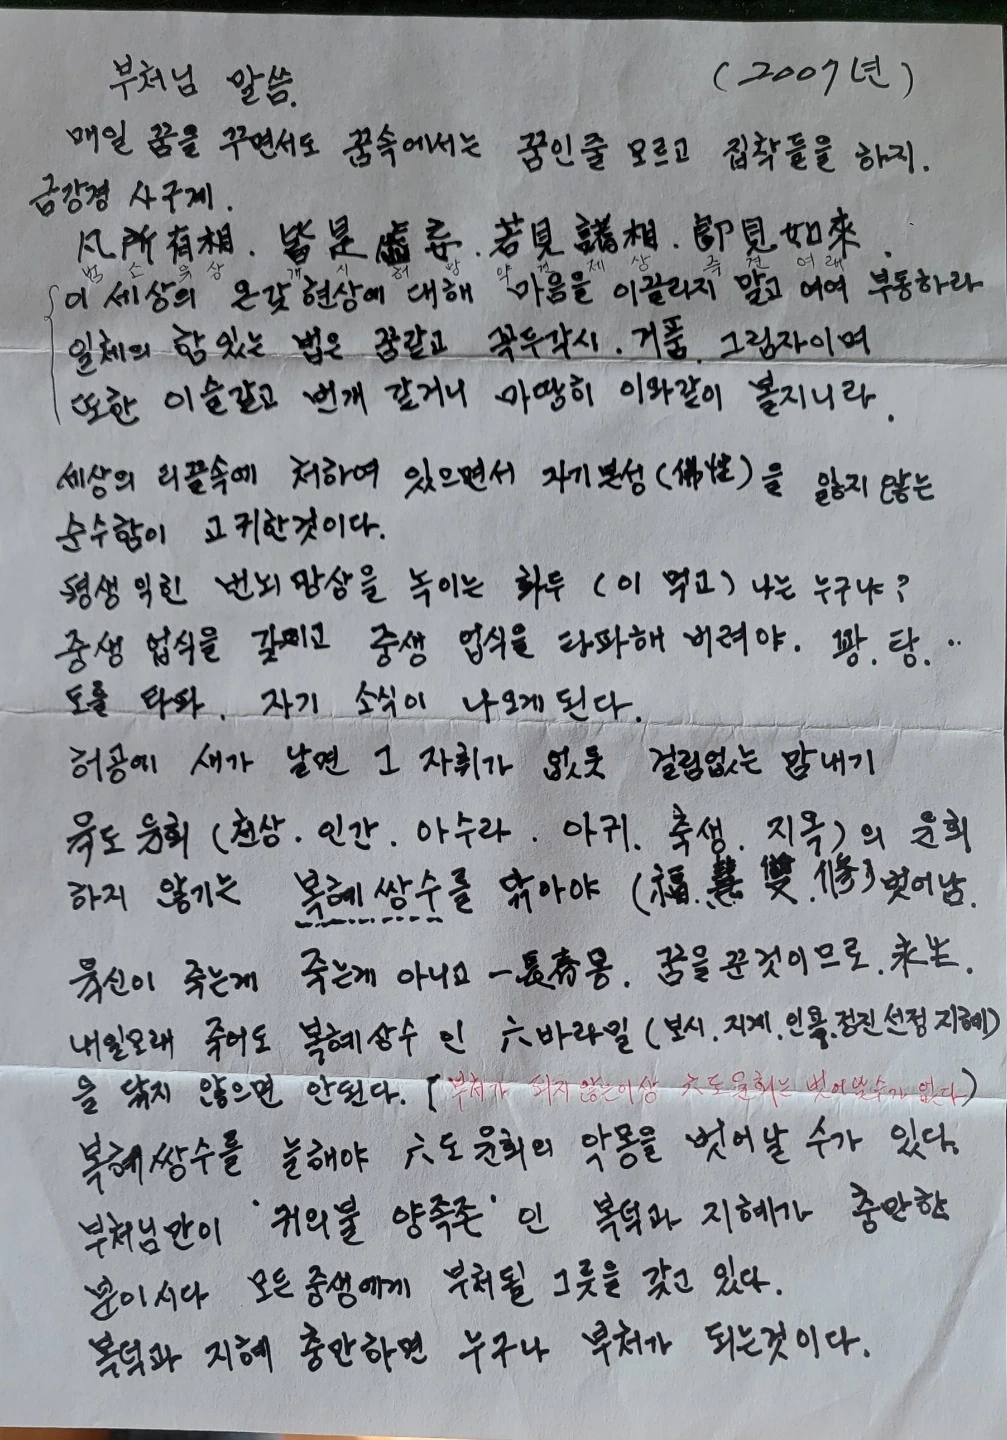 부처님 말씀. (2007년)
매일 꿈을 꾸면서도 꿈속에서는 꿈인줄 모르고 집착들을 하지.
금강경 사구게.
凡所有相. 皆是虛妄. 若見諸相. 卽見如來.
범소유상 개시허망 약견제상 즉견여래
이 세상의 온갖 현상에 대해 마음을 이끌리지 말고 여여 부동하라
일체의 함 있는 법은 꿈같고 꼭두각시. 거품. 그림자이며
또한 이슬같고 번개 같거니 마땅히 이와같이 볼지니라.
세상의 티끌속에 처하여 있으면서 자기본성(佛性)을 잃지 않는
순수함이 고귀한것이다.
평생 익힌 번뇌 망상을 녹이는 화두 (이 뭣고) 나는 누구냐?
중생 업식을 갖이고 중생 업식을 타파해 버려야. 꽝. 탕. ..
도를 타파. 자기 소식이 나오게된다.
허공에 새가 날면 그 자취가 없듯 걸림없는 맘내기
육도 윤회 (천상. 인간. 아수라. 아귀. 축생. 지옥)의 윤회
하지 않기는 복혜쌍수를 닦아야 (福.慧 雙.修) 벗어남.
육신이 죽는게 죽는게 아니고 一長春몽. 꿈을 꾼것이므로.
내일모래 죽어도 복혜쌍수 인 六바라밀 (보시.지계.인욕.정진선정 지혜)
을 닦지 않으면 안된다. [부처가 되지않는이상 六도윤회는 벗어날수가 없다)
복혜쌍수를 늘해야 六도 윤회의 악몽을 벗어날 수가 있다.
부처님만이 '귀의불 양족존' 인 복덕과 지혜가 충만한
분이시다 모든 중생에게 부처될 그릇을 갖고 있다.
복덕과 지혜 충만하면 누구나 부처가 되는것이다.